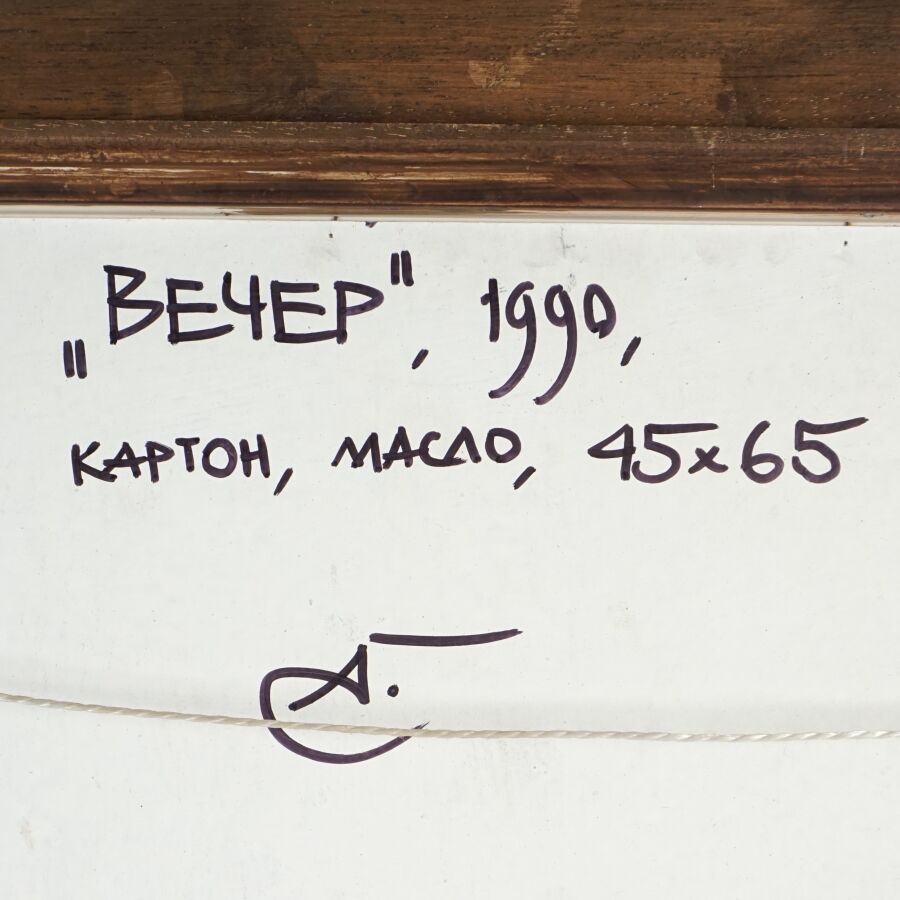 „ВЕЧЕР", 1990,
КАРТОН, МАСЛО, 45x65